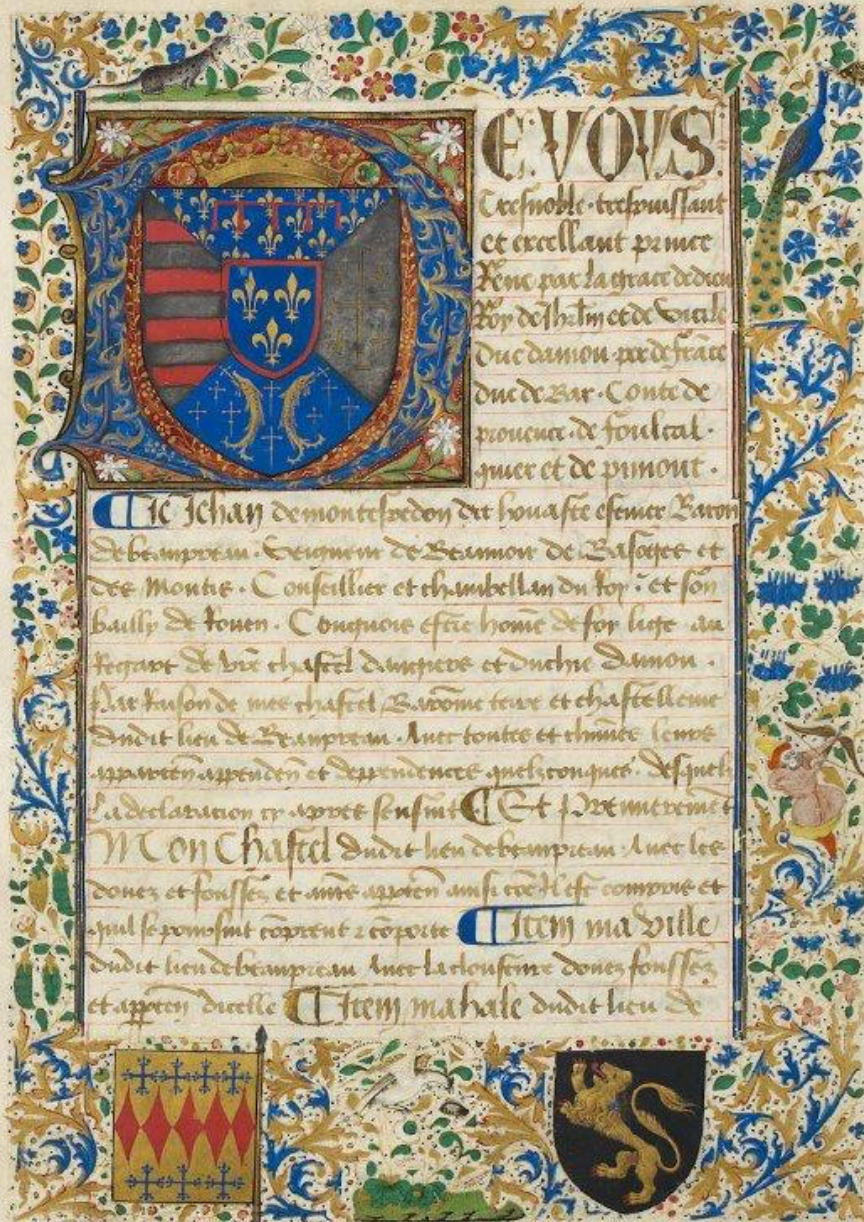 DE: VOUS:
Tresnoble · trespuissant
et excellant prince
Rene par la grace de dieu
Roy de Jhrlm et de Sicile
Duc danjou · per de frāce
duc de Bar · Conte de
prouence · de foulcal·
quier et de pimont ·
Je Jehan de montespedon dit houaste escuier Baron
de beaupreau · Seigneur de Beaumoir de Basoges et
des Montis · Conseillier et chambellan du Roy · et son
bailly de Rouen · Congnois estre home de foy lige au
Regart de vre chastel dangiers et duchie Danjou ·
Par Raison de mes chastel Baronnie terre et chastellenie
dudit lieu de Beaupreau · Auec toutes et chūnes leurs
apparten appenden et deppendences quelzconques · desquelz
La declaracion cy apres sensuit Et Premieremēt
Mon Chastel dudit lieu de beaupreau · Auec les
douez et foussez et aut̄s apparten ainsi cōe Il est compris et
quil se poursuit cōprent et cōporte Item ma ville
dudit lieu de beaupreau Auec la clousture douez foussez
et apparten dicelle Item ma hale dudit lieu de